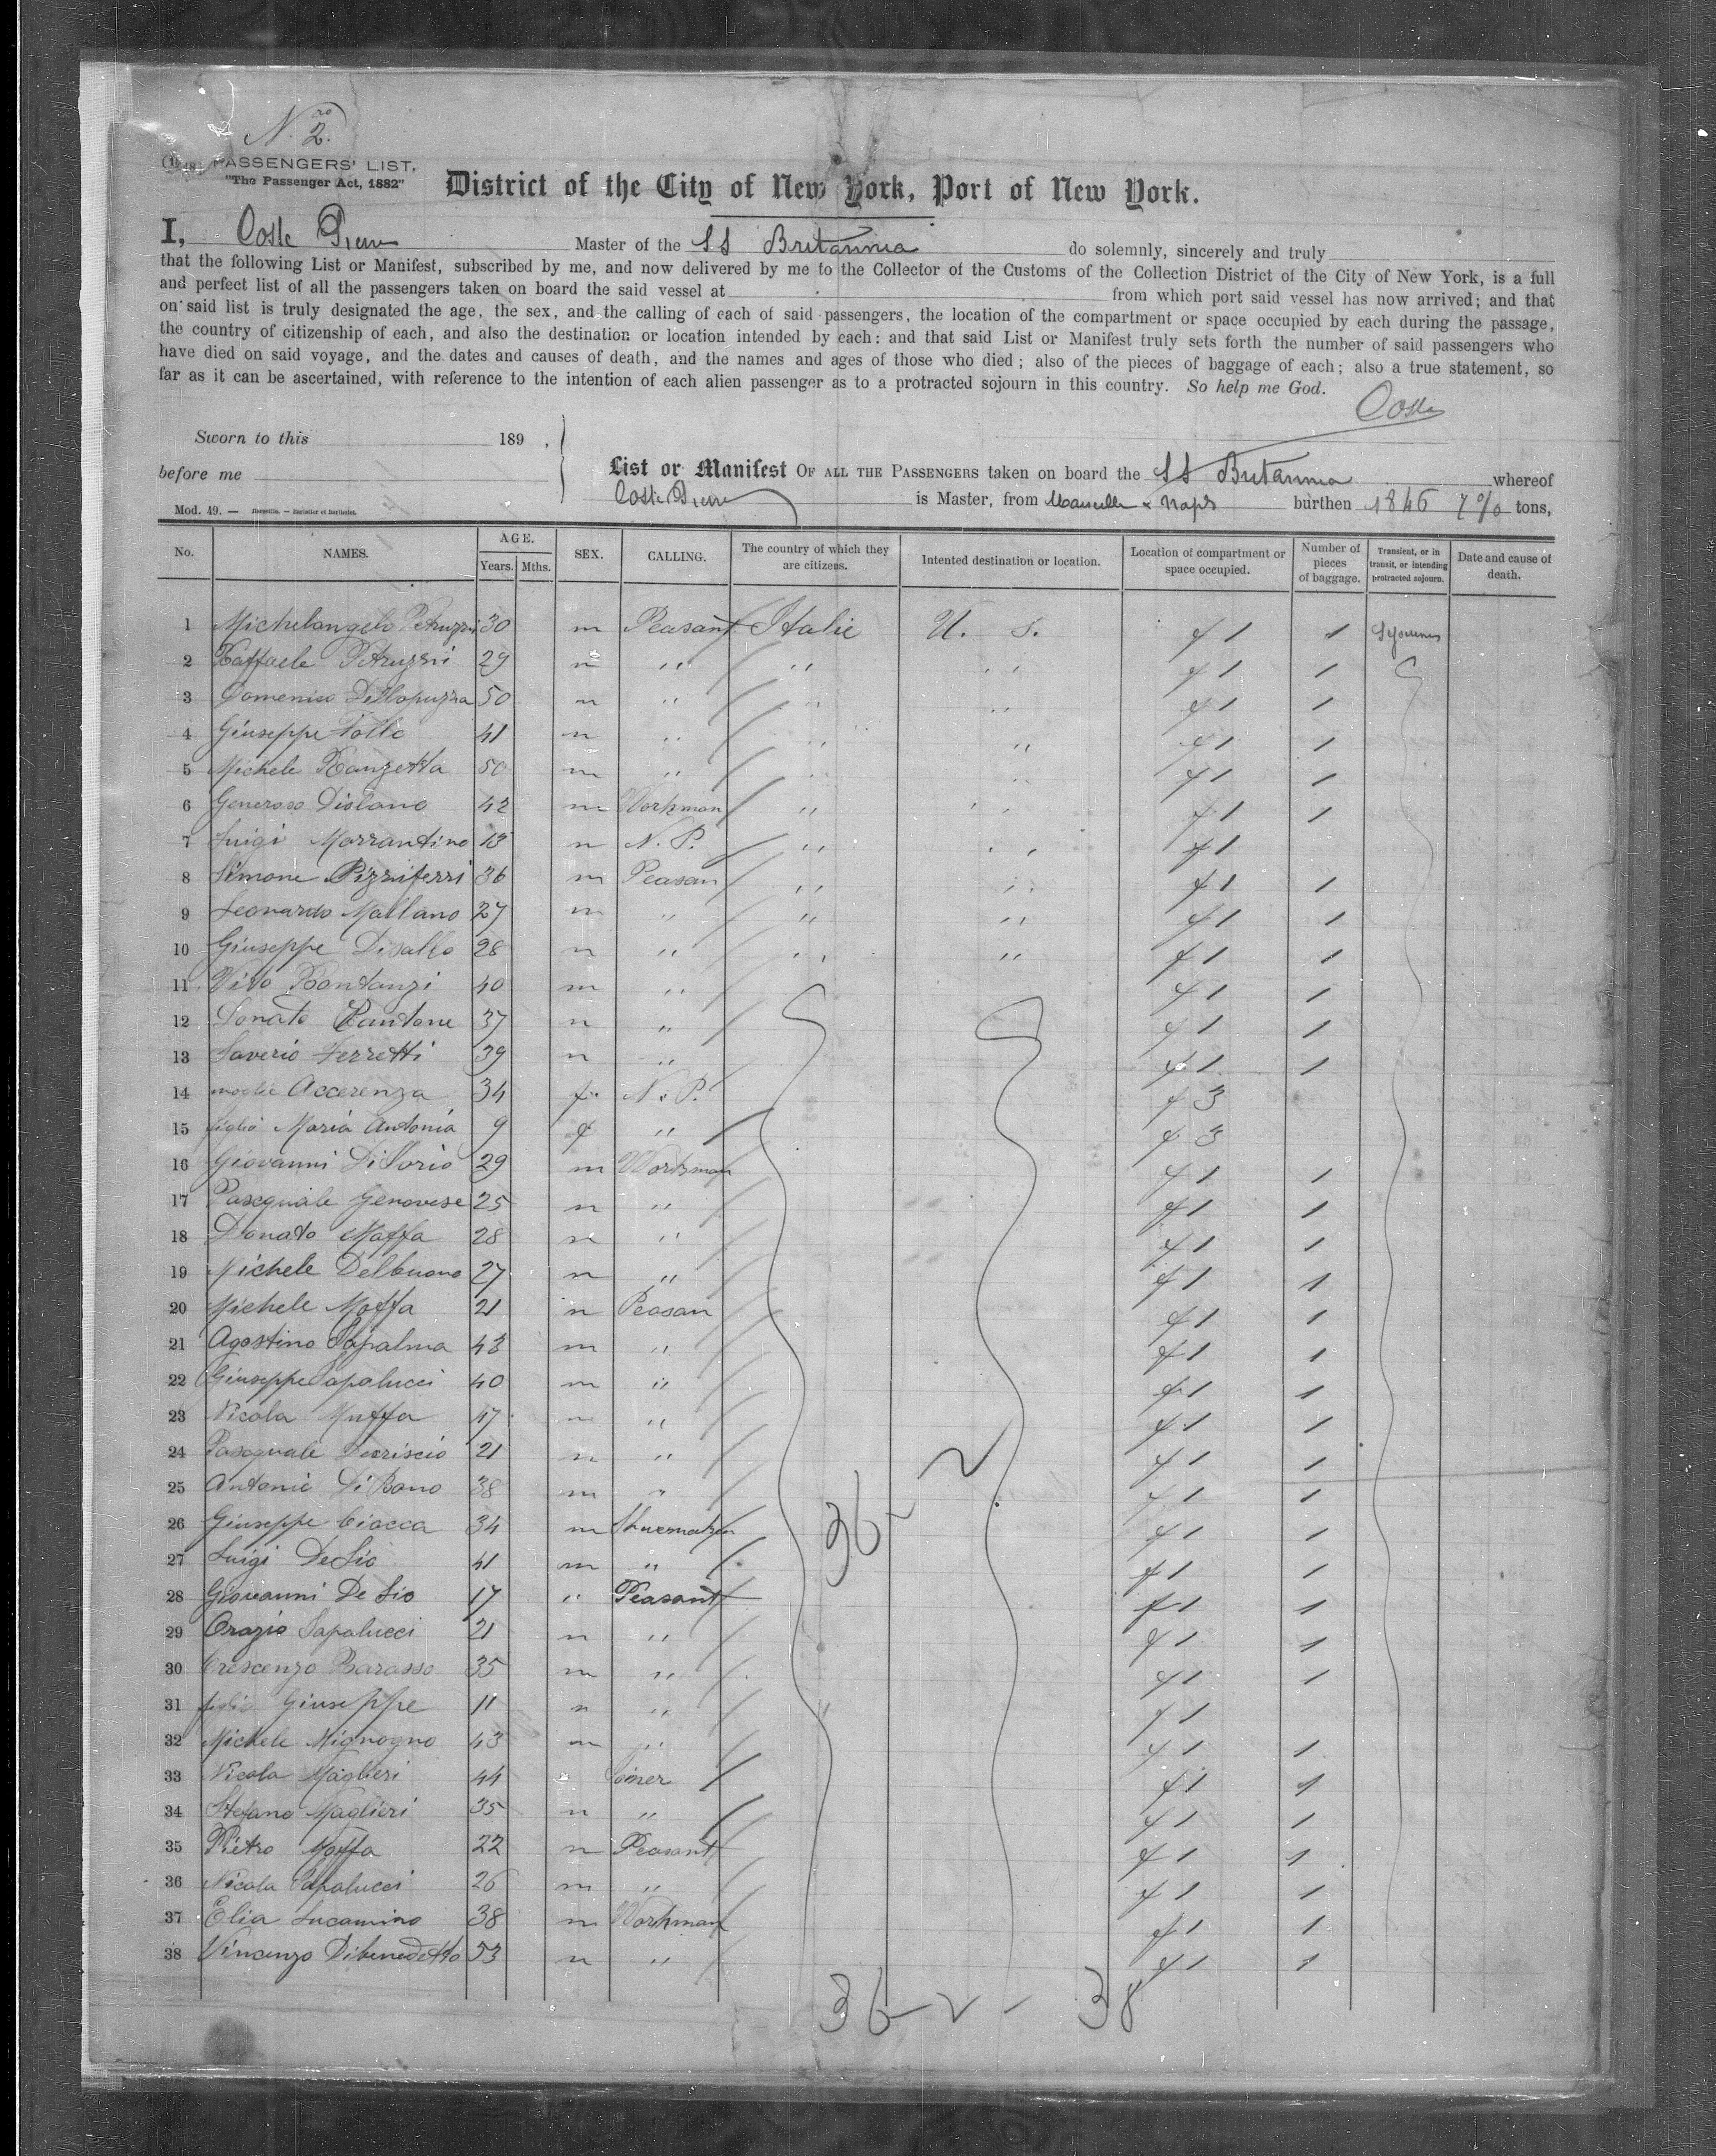 N.ro 2.
PASSENGERS' LIST.
"The Passenger Act, 1882"
District of the City of New York, Port of New York.
I, Coste Pierre Master of the SS Britannia do solemnly, sincerely and truly
that the following List or Manifest, subscribed by me, and now delivered by me to the Collector of the Customs of the Collection District of the City of New York, is a full
and perfect list of all the passengers taken on board the said vessel at from which port said vessel has now arrived; and that
on said list is truly designated the age, the sex, and the calling of each of said passengers, the location of the compartment or space occupied by each during the passage,
the country of citizenship of each, and also the destination or location intended by each: and that said List or Manifest truly sets forth the number of said passengers who
have died on said voyage, and the dates and causes of death, and the names and ages of those who died; also of the pieces of baggage of each; also a true statement, so
far as it can be ascertained, with reference to the intention of each alien passenger as to a protracted sojourn in this country. So help me God.
Coste
Sworn to this 189 .
before me
List or Manifest OF ALL THE PASSENGERS taken on board the SS Britannia whereof
Coste Pierre is Master, from Marseille & Naples burthen 1846 tons,
Mod. 49. — Marseille. — Barlatier et Barthelet.
No. NAMES. AGE. Years. Mths. SEX. CALLING. The country of which they are citizens. Intented destination or location. Location of compartment or space occupied. Number of pieces of baggage. Transient, or in transit, or intending protracted sojourn. Date and cause of death.
1 Michelangelo Petruzzi 30 m Peasant Italie U. S. f 1 1
2 Raffaele Petruzzi 29 m " " " f 1 1
3 Domenico 50 m " " " f 1 1
4 Giuseppe 41 m " " " f 1 1
5 Michele Ranzetta 50 m " " " f 1 1
6 Generoso Diolano 42 m Workman " " f 1 1
7 Luigi Marrantino 13 m N. P. " " f 1
8 Simone Pizziferri 36 m Peasan " " f 1 1
9 Leonardo Mallano 27 m " " " f 1 1
10 Giuseppe Disallo 28 m " " " f 1 1
11 Vito 40 m " f 1 1
12 Donato 37 m " f 1 1
13 Saverio Ferretti 39 m " f 1 1
14 moglie Accerenza 34 f N. P. f 3
15 figlia Maria Antonia 9 f " f 3
16 Giovanni DiIorio 29 m Workman f 1 1
17 Pasquale Genovese 25 m " f 1 1
18 Donato Maffa 28 m " f 1 1
19 Michele Delbuono 27 m " f 1 1
20 Michele Moffa 21 m Peasan f 1 1
21 Agostino Papalma 43 m " f 1 1
22 Giuseppe Sapalucci 40 m " f 1 1
23 Nicola Muffa 47 m " f 1 1
24 Pasquale 21 m " f 1 1
25 Antonio Di Bono 38 m " f 1 1
26 Giuseppe Ciocca 34 m f 1 1
27 Luigi De Lio 41 m " f 1 1
28 Giovanni De Lio 17 " Peasant f 1 1
29 Orazio Sapalucci 21 m " f 1 1
30 Crescenzo Barasso 35 m " f 1 1
31 figlio Giuseppe 11 m " f 1
32 Michele Mignogno 43 m " f 1 1
33 Nicola Maglieri 44 Joiner f 1 1
34 Stefano Maglieri 35 m " f 1 1
35 Pietro Moffa 22 m Peasant f 1 1
36 Nicola Sapalucci 26 m " f 1 1
37 Elia Lucamino 38 m Workman f 1 1
38 Vincenzo Dibenedetto 53 m " f 1 1
36
36 - 2 - 38